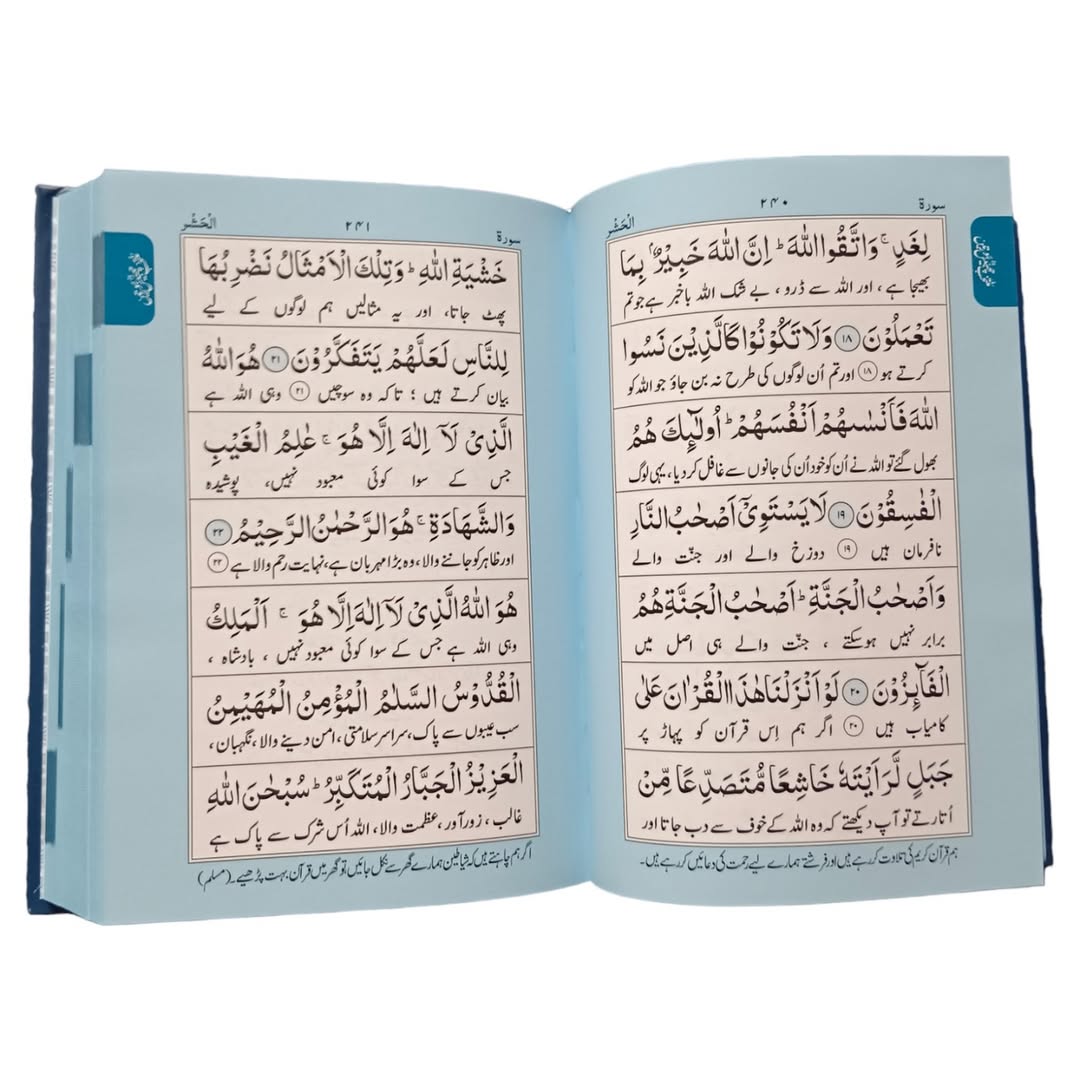 سورۃ ۲۴۰ الْحَشْر
لِغَدٍ ۚ وَاتَّقُوا اللّٰهَ ؕ اِنَّ اللّٰهَ خَبِيْرٌۢ بِمَا
بھیجا ہے ، اور اللہ سے ڈرو ، بے شک اللہ باخبر ہے جو تم
تَعْمَلُوْنَ ﴿۱۸﴾ وَلَا تَكُوْنُوْا كَالَّذِيْنَ نَسُوا
کرتے ہو ﴿۱۸﴾ اور تم اُن لوگوں کی طرح نہ بن جاؤ جو اللہ کو
اللّٰهَ فَاَنْسٰىهُمْ اَنْفُسَهُمْ ؕ اُولٰٓئِكَ هُمُ
بھول گئے تو اللہ نے اُن کو خود اُن کی جانوں سے غافل کر دیا ، یہی لوگ
الْفٰسِقُوْنَ ﴿۱۹﴾ لَا يَسْتَوِيْۤ اَصْحٰبُ النَّارِ
نافرمان ہیں ﴿۱۹﴾ دوزخ والے اور جنّت والے
وَاَصْحٰبُ الْجَنَّةِ ؕ اَصْحٰبُ الْجَنَّةِ هُمُ
برابر نہیں ہوسکتے ، جنّت والے ہی اصل میں
الْفَآئِزُوْنَ ﴿۲۰﴾ لَوْ اَنْزَلْنَا هٰذَا الْقُرْاٰنَ عَلٰى
کامیاب ہیں ﴿۲۰﴾ اگر ہم اِس قرآن کو پہاڑ پر
جَبَلٍ لَّرَاَيْتَهٗ خَاشِعًا مُّتَصَدِّعًا مِّنْ
اُتارتے تو آپ دیکھتے کہ وہ اللہ کے خوف سے دب جاتا اور
ہم قرآن کریم کی تلاوت کر رہے ہیں اور فرشتے ہمارے لیے رحمت کی دعائیں کر رہے ہیں۔
سورۃ ۲۴۱ الْحَشْر
خَشْيَةِ اللّٰهِ ؕ وَتِلْكَ الْاَمْثَالُ نَضْرِبُهَا
پھٹ جاتا، اور یہ مثالیں ہم لوگوں کے لیے
لِلنَّاسِ لَعَلَّهُمْ يَتَفَكَّرُوْنَ ﴿۲۱﴾ هُوَ اللّٰهُ
بیان کرتے ہیں ؛ تاکہ وہ سوچیں ﴿۲۱﴾ وہی اللہ ہے
الَّذِيْ لَاۤ اِلٰهَ اِلَّا هُوَ ۚ عٰلِمُ الْغَيْبِ
جس کے سوا کوئی معبود نہیں، پوشیدہ
وَالشَّهَادَةِ ۚ هُوَ الرَّحْمٰنُ الرَّحِيْمُ ﴿۲۲﴾
اور ظاہر کو جاننے والا، وہ بڑا مہربان ہے، نہایت رحم والا ہے ﴿۲۲﴾
هُوَ اللّٰهُ الَّذِيْ لَاۤ اِلٰهَ اِلَّا هُوَ ۚ اَلْمَلِكُ
وہی اللہ ہے جس کے سوا کوئی معبود نہیں ، بادشاہ ،
الْقُدُّوْسُ السَّلٰمُ الْمُؤْمِنُ الْمُهَيْمِنُ
سب عیبوں سے پاک، سراسر سلامتی، امن دینے والا ، نگہبان ،
الْعَزِيْزُ الْجَبَّارُ الْمُتَكَبِّرُ ؕ سُبْحٰنَ اللّٰهِ
غالب ، زور آور، عظمت والا، اللہ اُس شرک سے پاک ہے
اگر ہم چاہتے ہیں کہ شیاطین ہمارے گھر سے نکل جائیں تو گھر میں قرآن، بہت پڑھیے۔ (مسلم)